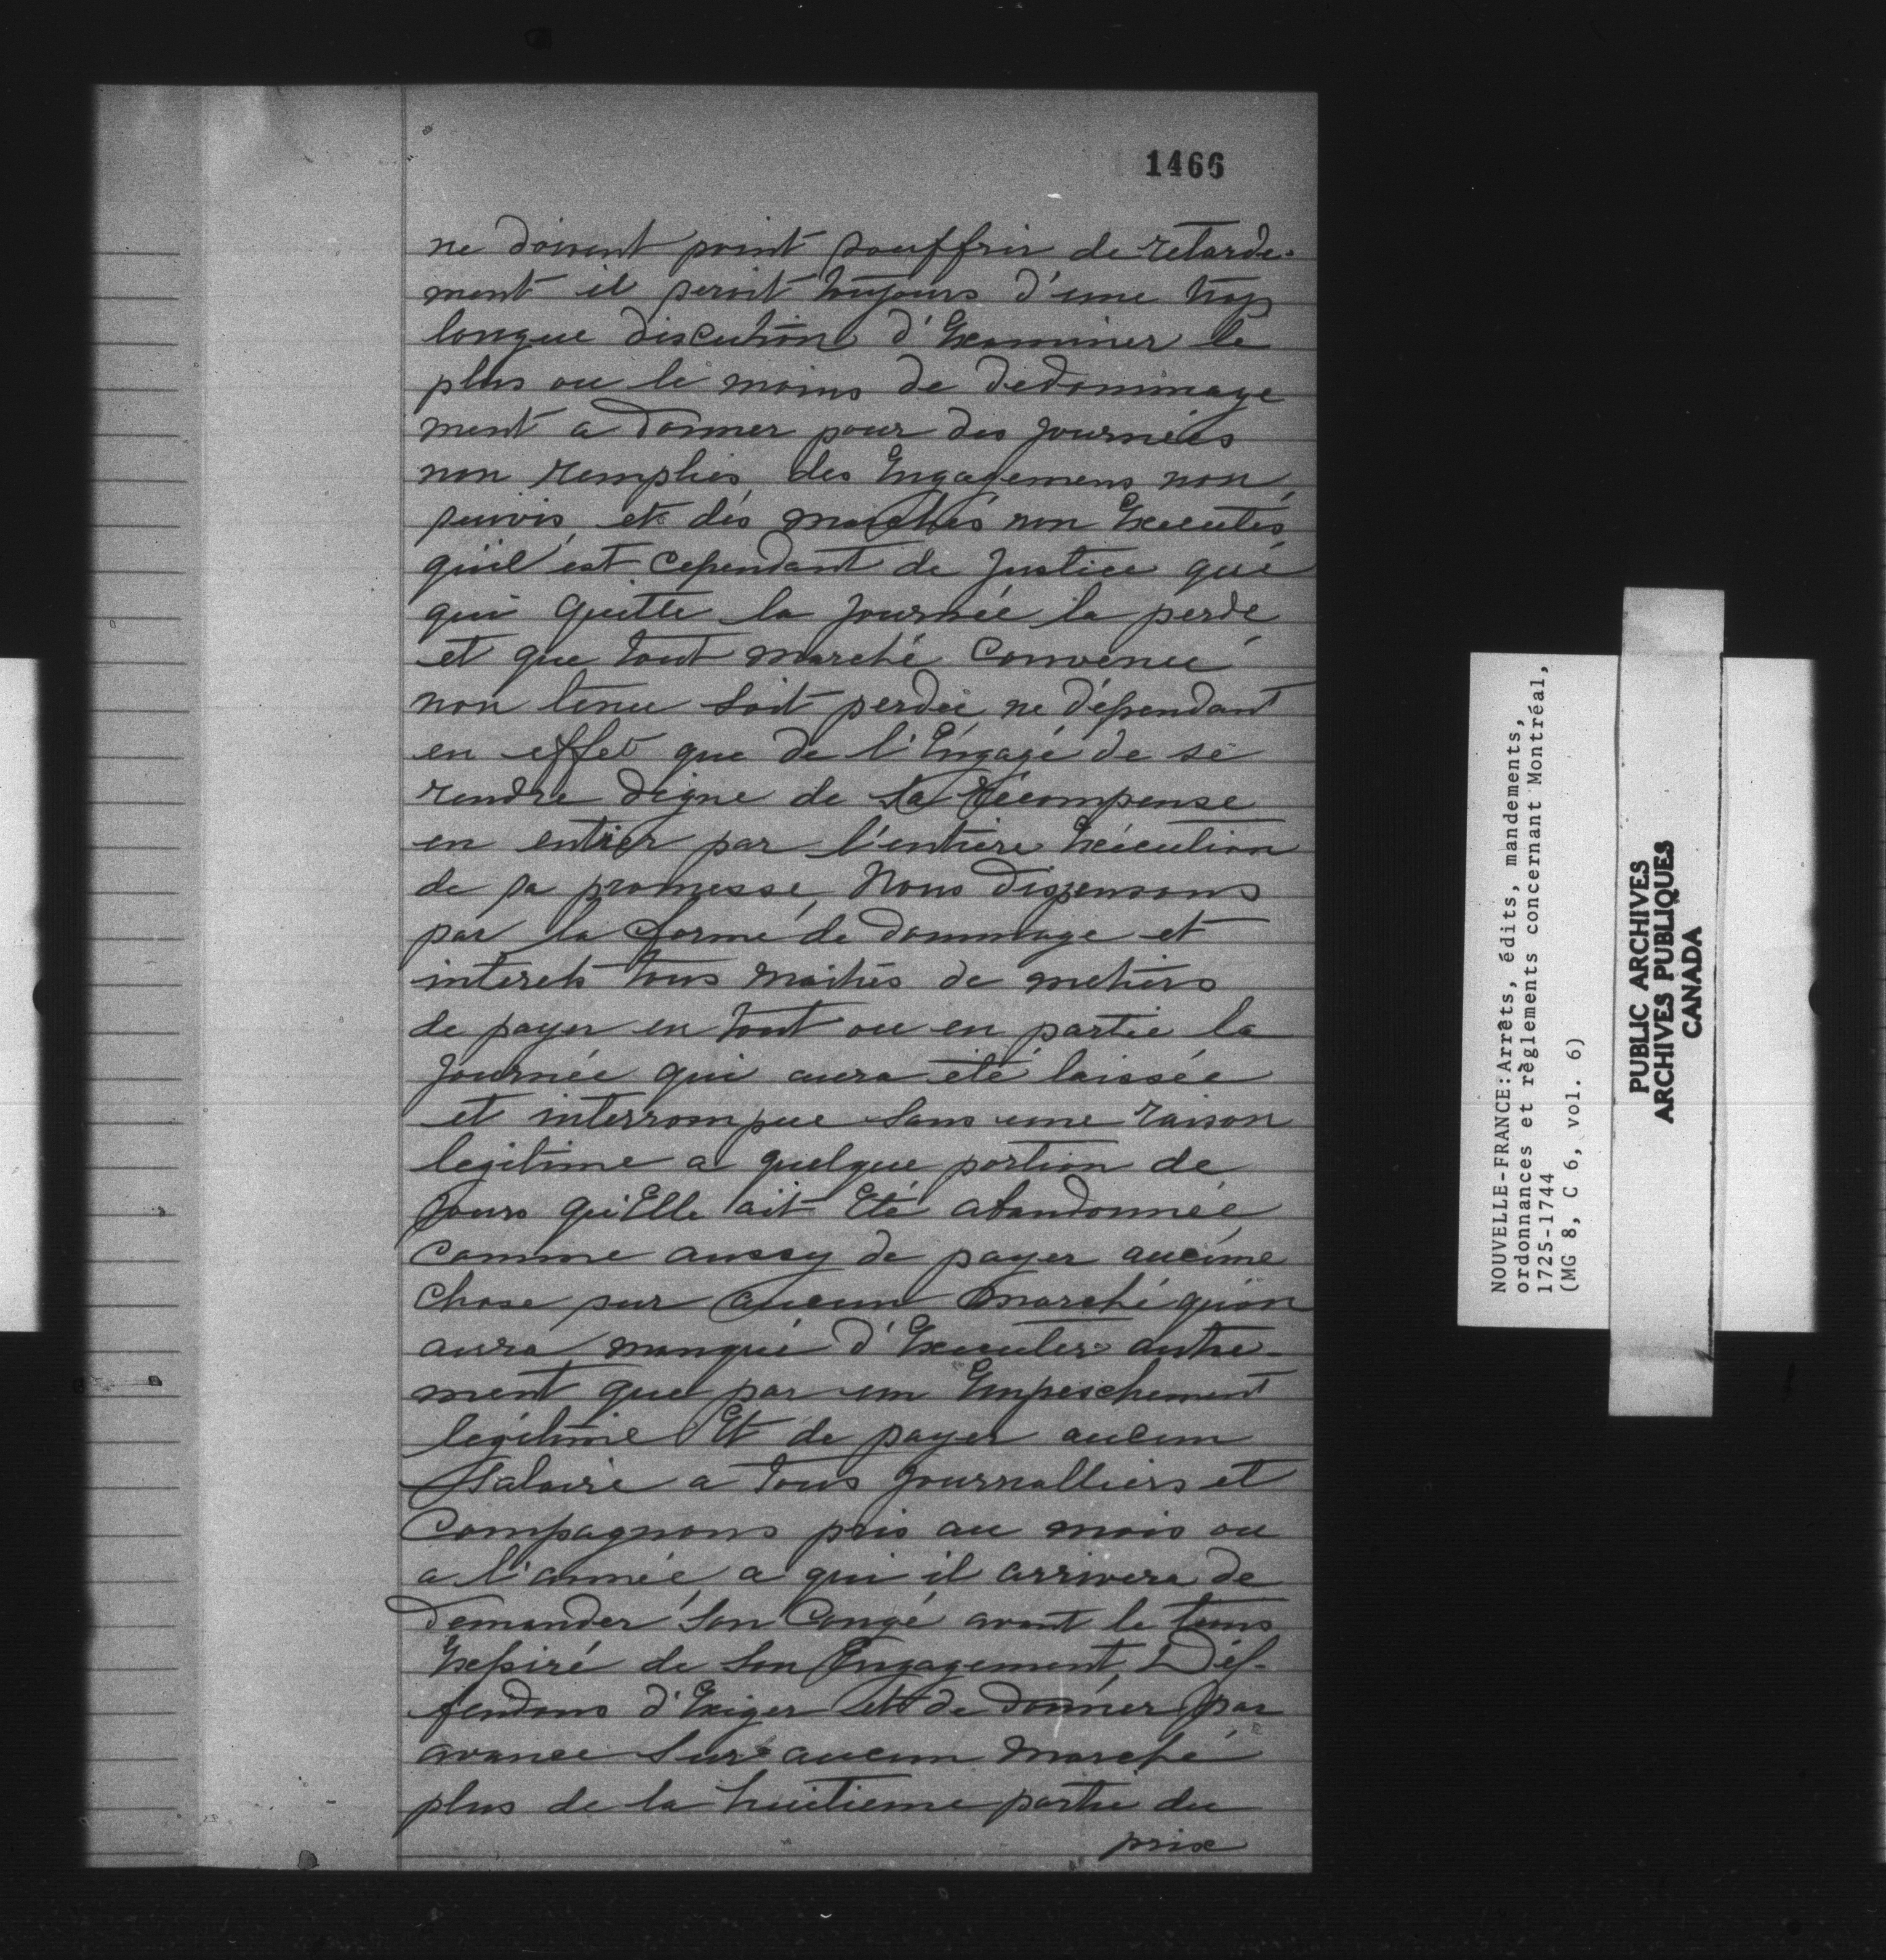 1466
ne doivent point souffrir de retarde-
ment il seroit toujours d'une trop
longue discution d'Examiner le
plus ou le moins de dedommage
ment a donner pour des journées
non remplies des Engagemens non
suivis, et des marchés non Executés,
qu'il est cependant de justice que
qui quitte la journée la perde
et que tout marché convenu
non tenu soit perdu ne dépendant
en effet que de l'Engagé de se
rendre digne de sa récompense
en entier par l'entière Exécution
de sa promesse, Nous dispensons
par la forme de dommage et
interets tous maitres de metiers
de payer en tout ou en partie la
journée qui aura été laissée
et interrompue sans une raison
legitime a quelque portion de
jours qu'Elle ait Eté abandonnée
comme aussy de payer aucune
chose sur aucun marché qu'on
aura manqué d'Executer autre-
ment que par un Empeschement
légitime Et de payer aucun
salaire a tous journalliers et
Compagnons pris au mois ou
a l'année a qui il arrivera de
demander son Congé avant le tems
Expiré de son Engagement, Déf-
fendons d'Exiger et de donner par
avance sur aucun marché
plus de la huitieme partie du
prix
NOUVELLE-FRANCE:Arrêts, édits, mandements,
ordonnances et règlements concernant Montréal,
1725-1744
(MG 8, C 6, vol. 6)
PUBLIC ARCHIVES
ARCHIVES PUBLIQUES
CANADA